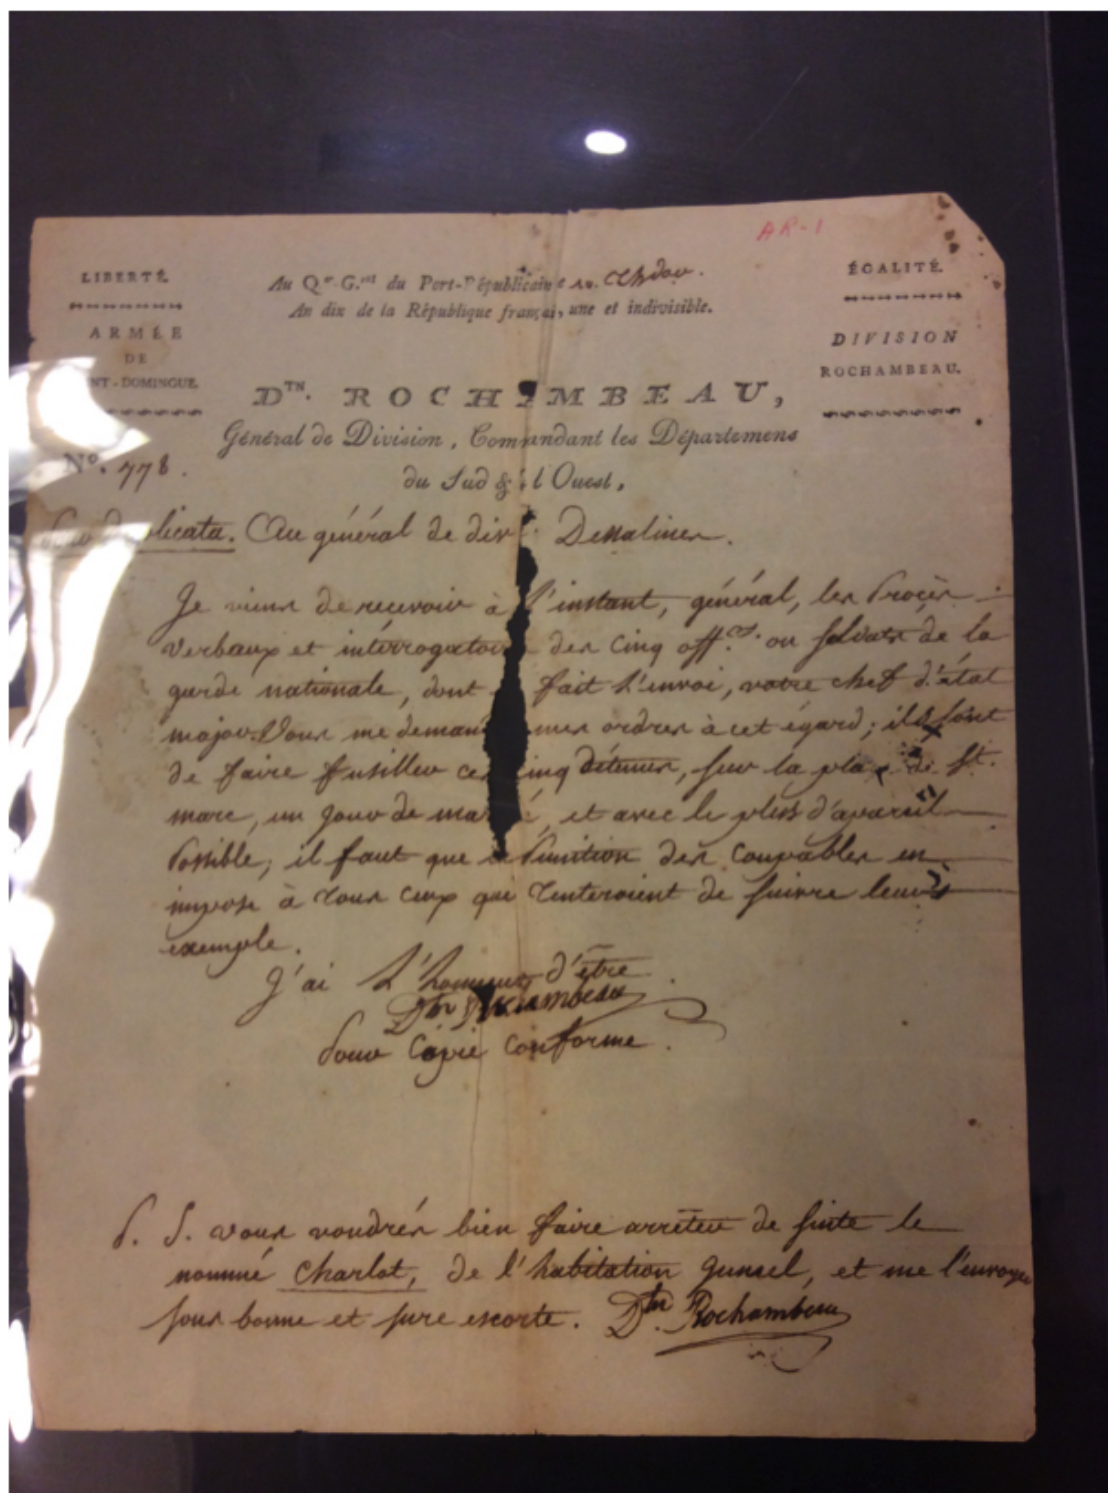 AR-1
LIBERTÉ.
ARMÉE
DE
NT-DOMINGUE.
Au Q.er G.ral du Port-Républicain
An dix de la République français, une et indivisible.
ÉGALITÉ.
DIVISION
ROCHAMBEAU.
D.TN. ROCHAMBEAU,
Général de Division, Commandant les Départemens
du Sud & l'Ouest,
No. 778.
Au général de div. Dessalines.
Je viens de recevoir à l'instant, général, les Procès
verbaux et interrogatoi des cinq off.rs ou soldats de la
garde nationale, dont fait l'envoi, votre chef d'état
major. Vous me deman mes ordres à cet égard; ils sont
de faire fusiller ces cinq détenus, sur la place de St.
marc, un jour de mar é, et avec le plus d'apareil
Possible; il faut que la Punition des coupables en
impose à tous ceux qui tenteroient de suivre leurs
exemple.
J'ai l'honneur d'être
Dtn Rochambeau
Pour Copie Conforme.
P. S. vous voudrés bien faire arrêter de suite le
nommé Charlot, de l'habitation et me l'envoyer
sous bonne et sure escorte. Dtn. Rochambeau